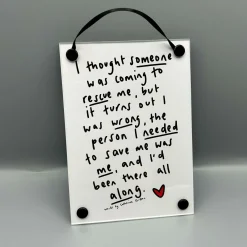 I thought someone
was coming to
rescue me, but
it turns out I
was wrong, the
person I needed
to save me was
me, and I'd
been there all
along.